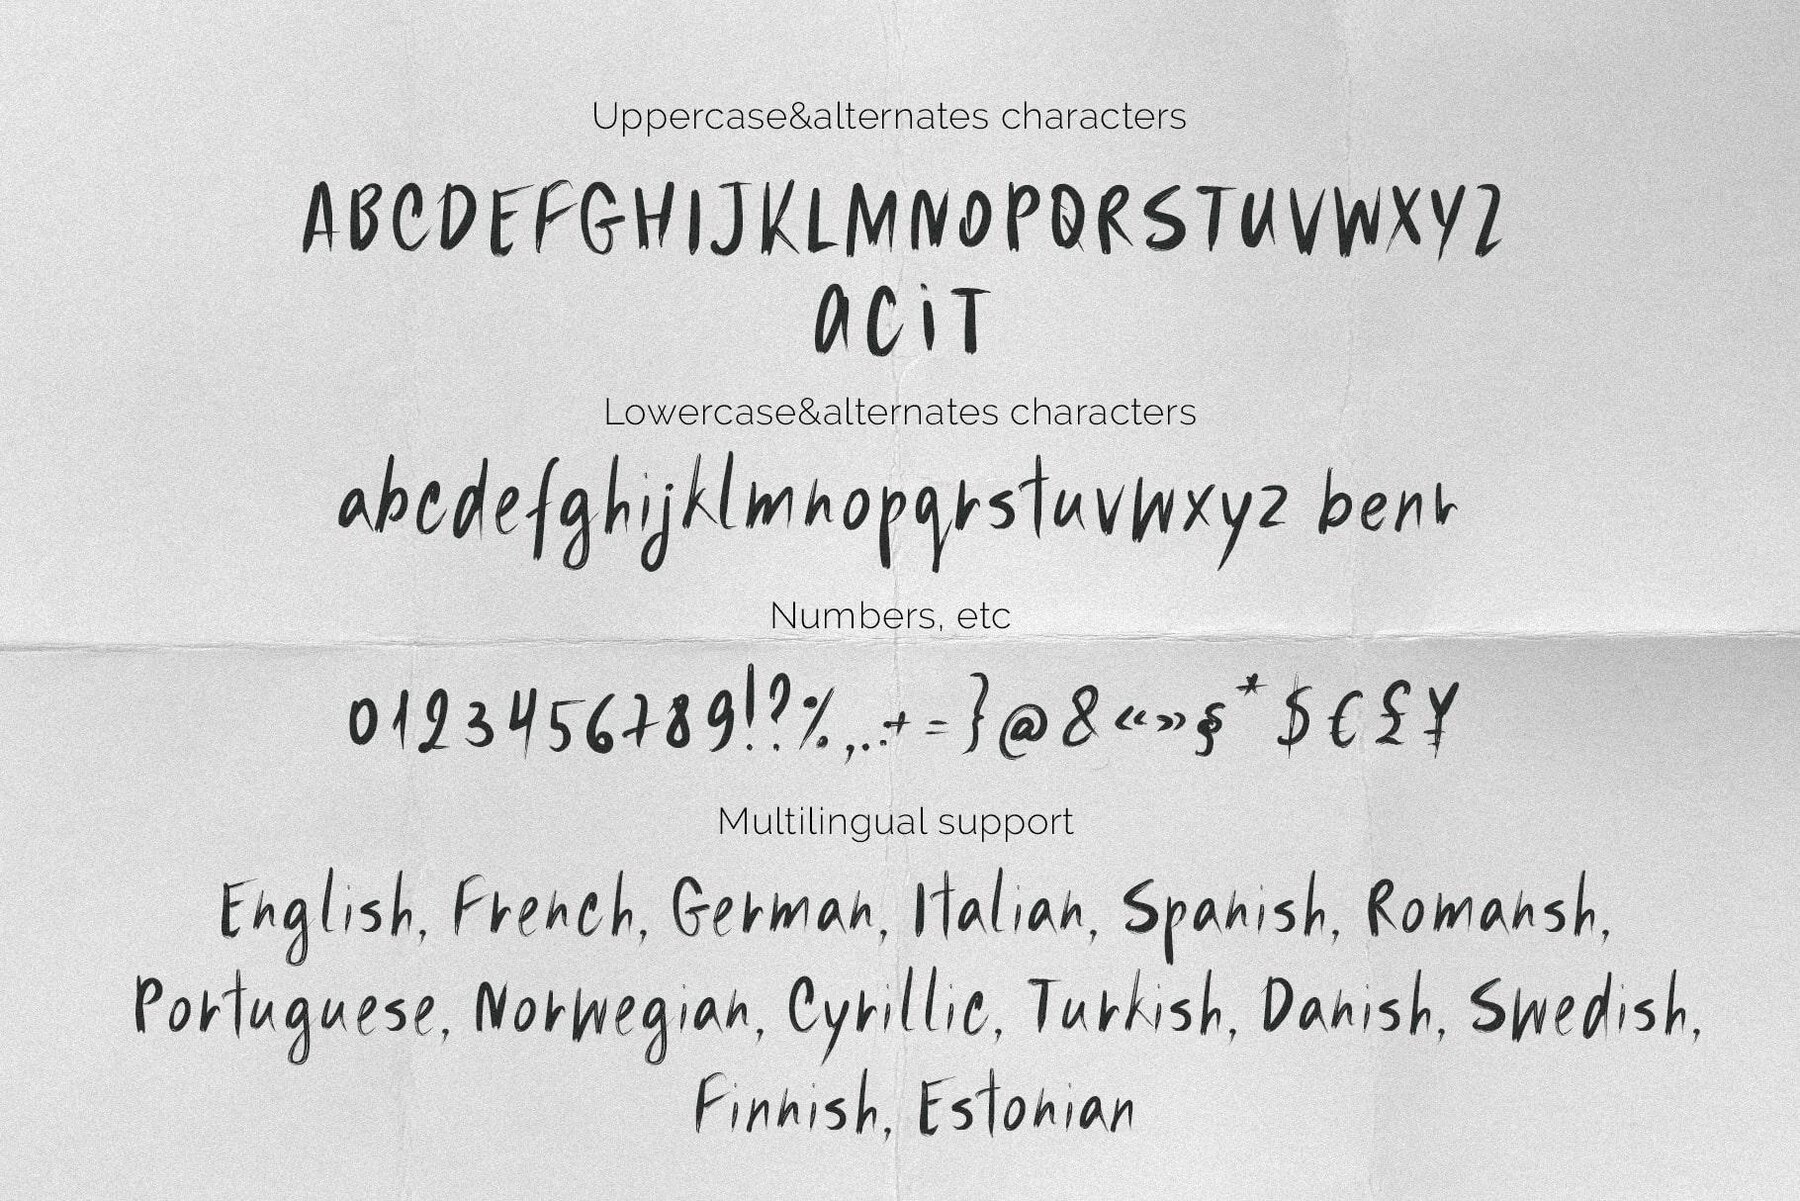 Uppercase&alternates characters
ABCDEFGHIJKLMNOPQRSTUVWXYZ
aCiT
Lowercase&alternates characters
abcdefghijklmnopqrstuvwxyz benr
Numbers, etc
0123456789!?%,.:+=}@&«»§*$€£¥
Multilingual support
English, French, German, Italian, Spanish, Romansh,
Portuguese, Norwegian, Cyrillic, Turkish, Danish, Swedish,
Finnish, Estonian